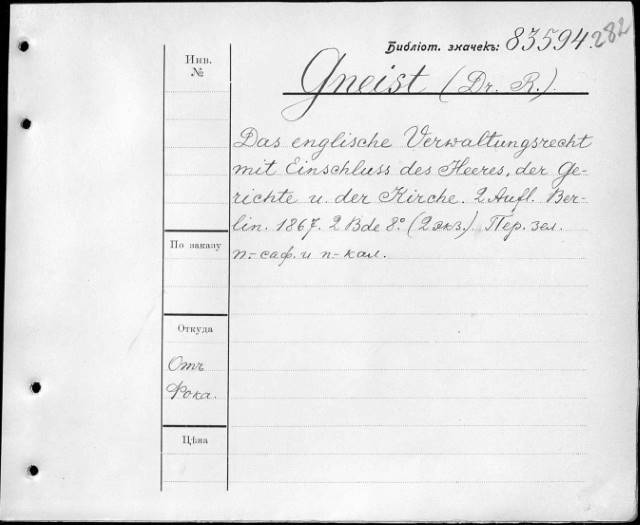 Библіот. значекъ: 83594. 282
Инв. №
Gneist (Dr. R.).
Das englische Verwaltungsrecht
mit Einschluss des Heeres, der Ge-
richte u. der Kirche. 2 Aufl. Ber-
lin. 1867. 2 Bde 8º (2 экз.) Пер. зел.
п.-саф. и п.-кал.
По заказу
Откуда
Отъ
Фока.
Цѣна